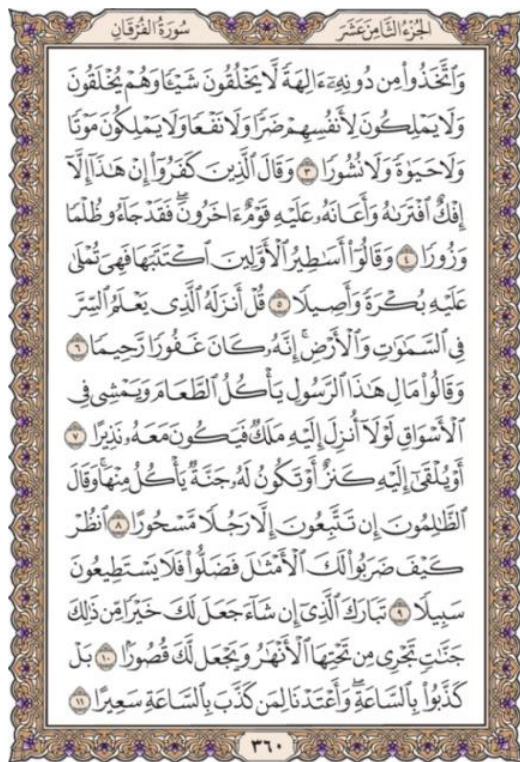 الجُزْءُ الثَّامِنَ عَشَرَ سُورَةُ الفُرْقَانِ
وَٱتَّخَذُوا۟ مِن دُونِهِۦٓ ءَالِهَةً لَّا يَخْلُقُونَ شَيْـًٔا وَهُمْ يُخْلَقُونَ
وَلَا يَمْلِكُونَ لِأَنفُسِهِمْ ضَرًّا وَلَا نَفْعًا وَلَا يَمْلِكُونَ مَوْتًا
وَلَا حَيَوٰةً وَلَا نُشُورًا ٣ وَقَالَ ٱلَّذِينَ كَفَرُوٓا۟ إِنْ هَٰذَآ إِلَّآ
إِفْكٌ ٱفْتَرَىٰهُ وَأَعَانَهُۥ عَلَيْهِ قَوْمٌ ءَاخَرُونَ ۖ فَقَدْ جَآءُو ظُلْمًا
وَزُورًا ٤ وَقَالُوٓا۟ أَسَٰطِيرُ ٱلْأَوَّلِينَ ٱكْتَتَبَهَا فَهِىَ تُمْلَىٰ
عَلَيْهِ بُكْرَةً وَأَصِيلًا ٥ قُلْ أَنزَلَهُ ٱلَّذِى يَعْلَمُ ٱلسِّرَّ
فِى ٱلسَّمَٰوَٰتِ وَٱلْأَرْضِ ۚ إِنَّهُۥ كَانَ غَفُورًا رَّحِيمًا ٦
وَقَالُوا۟ مَالِ هَٰذَا ٱلرَّسُولِ يَأْكُلُ ٱلطَّعَامَ وَيَمْشِى فِى
ٱلْأَسْوَاقِ ۙ لَوْلَآ أُنزِلَ إِلَيْهِ مَلَكٌ فَيَكُونَ مَعَهُۥ نَذِيرًا ٧
أَوْ يُلْقَىٰٓ إِلَيْهِ كَنزٌ أَوْ تَكُونُ لَهُۥ جَنَّةٌ يَأْكُلُ مِنْهَا ۚ وَقَالَ
ٱلظَّٰلِمُونَ إِن تَتَّبِعُونَ إِلَّا رَجُلًا مَّسْحُورًا ٨ ٱنظُرْ
كَيْفَ ضَرَبُوا۟ لَكَ ٱلْأَمْثَٰلَ فَضَلُّوا۟ فَلَا يَسْتَطِيعُونَ
سَبِيلًا ٩ تَبَارَكَ ٱلَّذِىٓ إِن شَآءَ جَعَلَ لَكَ خَيْرًا مِّن ذَٰلِكَ
جَنَّٰتٍ تَجْرِى مِن تَحْتِهَا ٱلْأَنْهَٰرُ وَيَجْعَل لَّكَ قُصُورًۢا ١٠ بَلْ
كَذَّبُوا۟ بِٱلسَّاعَةِ ۖ وَأَعْتَدْنَا لِمَن كَذَّبَ بِٱلسَّاعَةِ سَعِيرًا ١١
٣٦٠